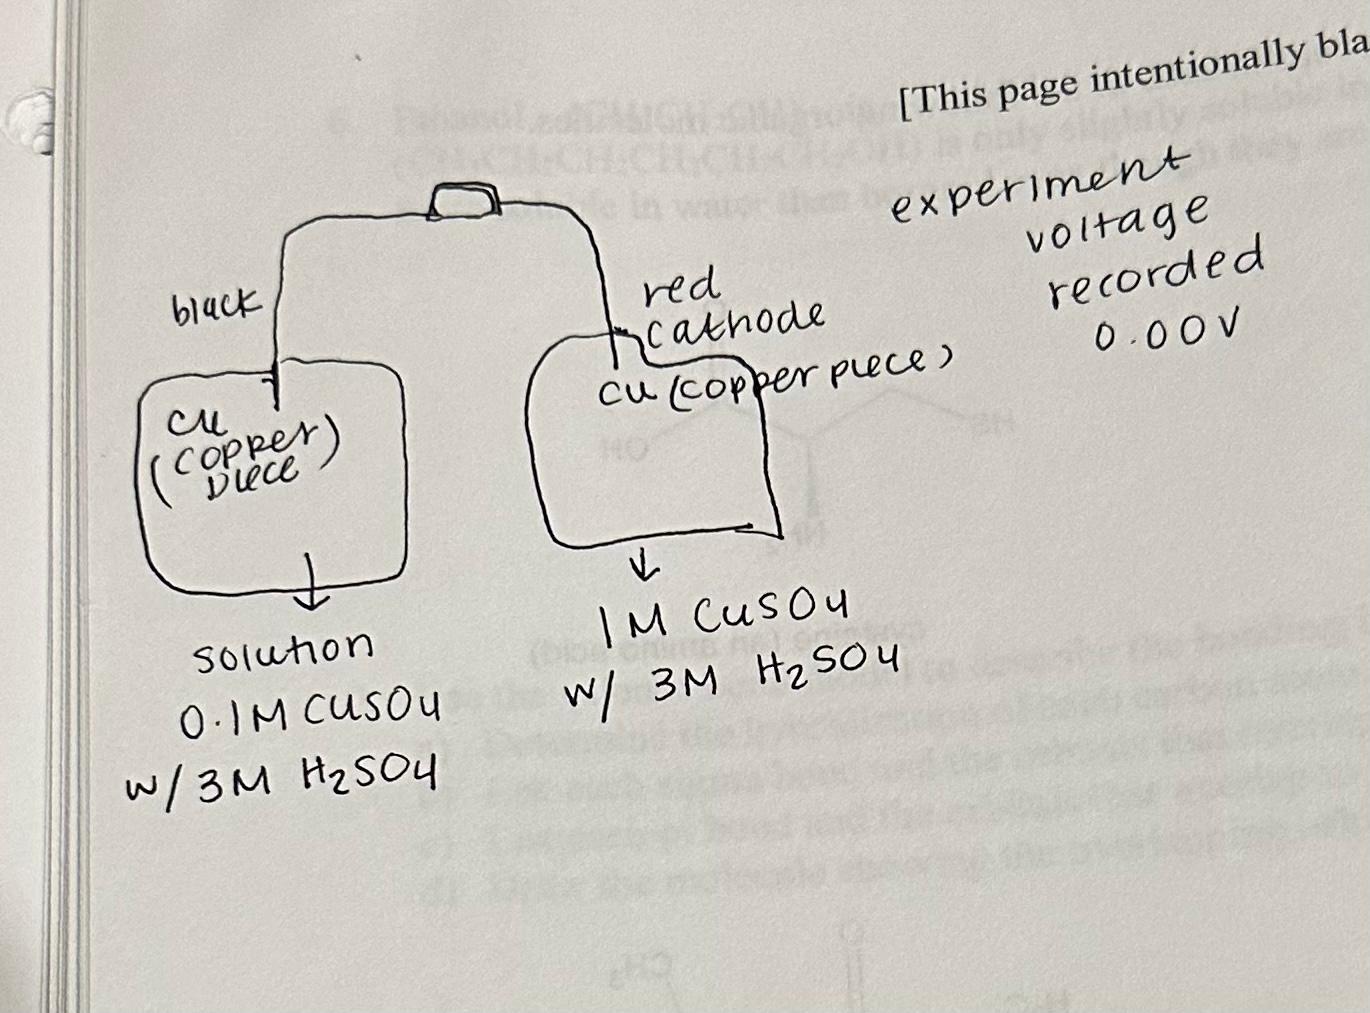 [This page intentionally bla
experiment
voltage
recorded
0.00V
black
red
cathode
cu (copper piece)
cu
(copper)
piece
solution
0.1M CuSO4
w/ 3M H2SO4
1M CuSO4
w/ 3M H2SO4